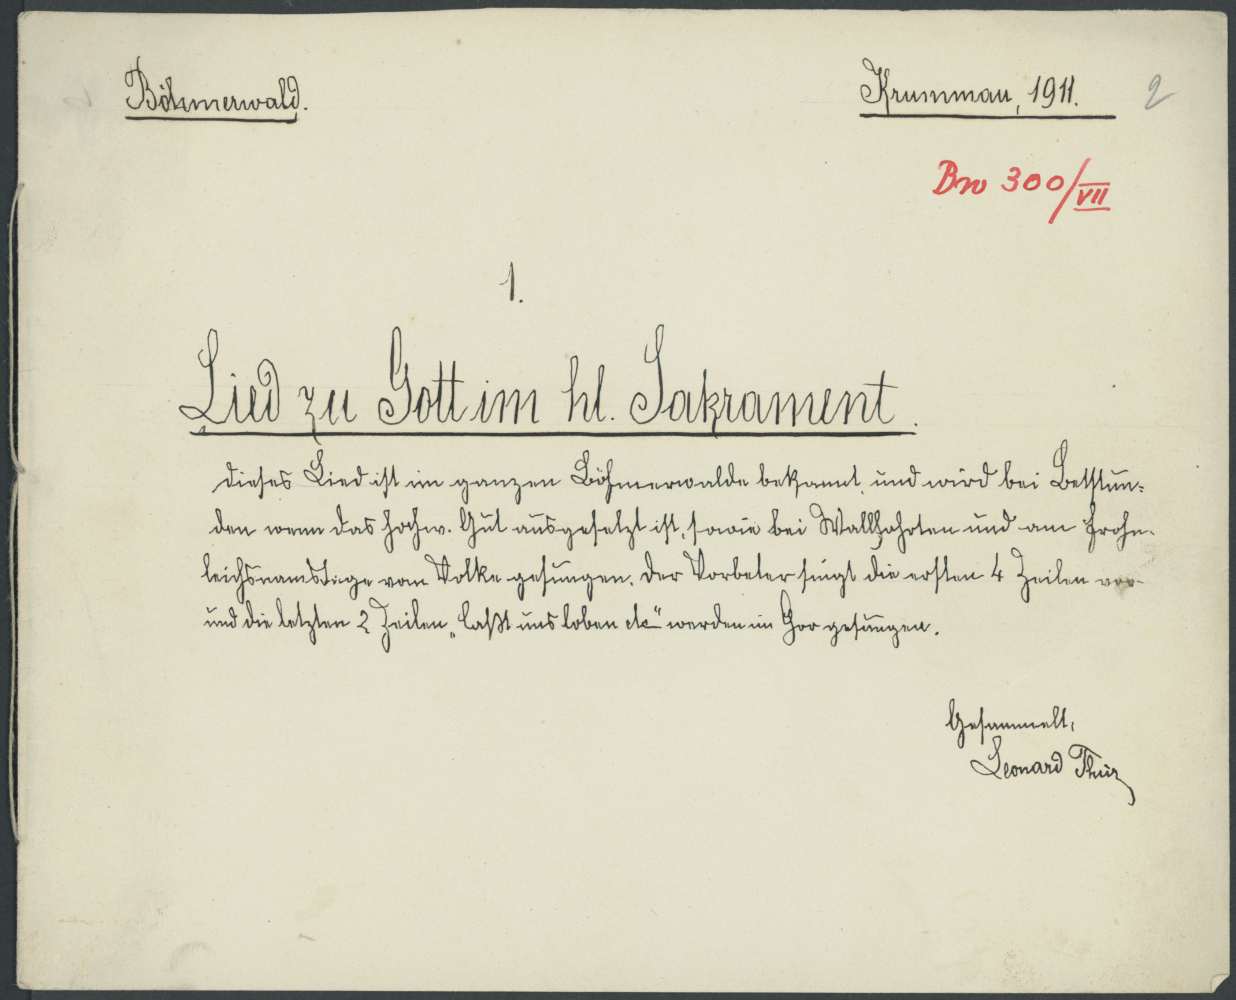 Böhmerwald.
Krummau, 1911.
2
Bw 300/VII
1.
Lied zu Gott im hl. Sakrament.
dieses Lied ist im ganzen Böhmerwalde bekannt und wird bei Betstun-
den wenn das hochw. Gut ausgesetzt ist, sowie bei Wallfahrten und am Frohn-
leichnamstage vom Volke gesungen. Der Vorbeter singt die ersten 4 Zeilen vor
und die letzten 2 Zeilen „laßt uns loben etc" werden im Gor gesungen.
Gesammelt:
Leonard Thür